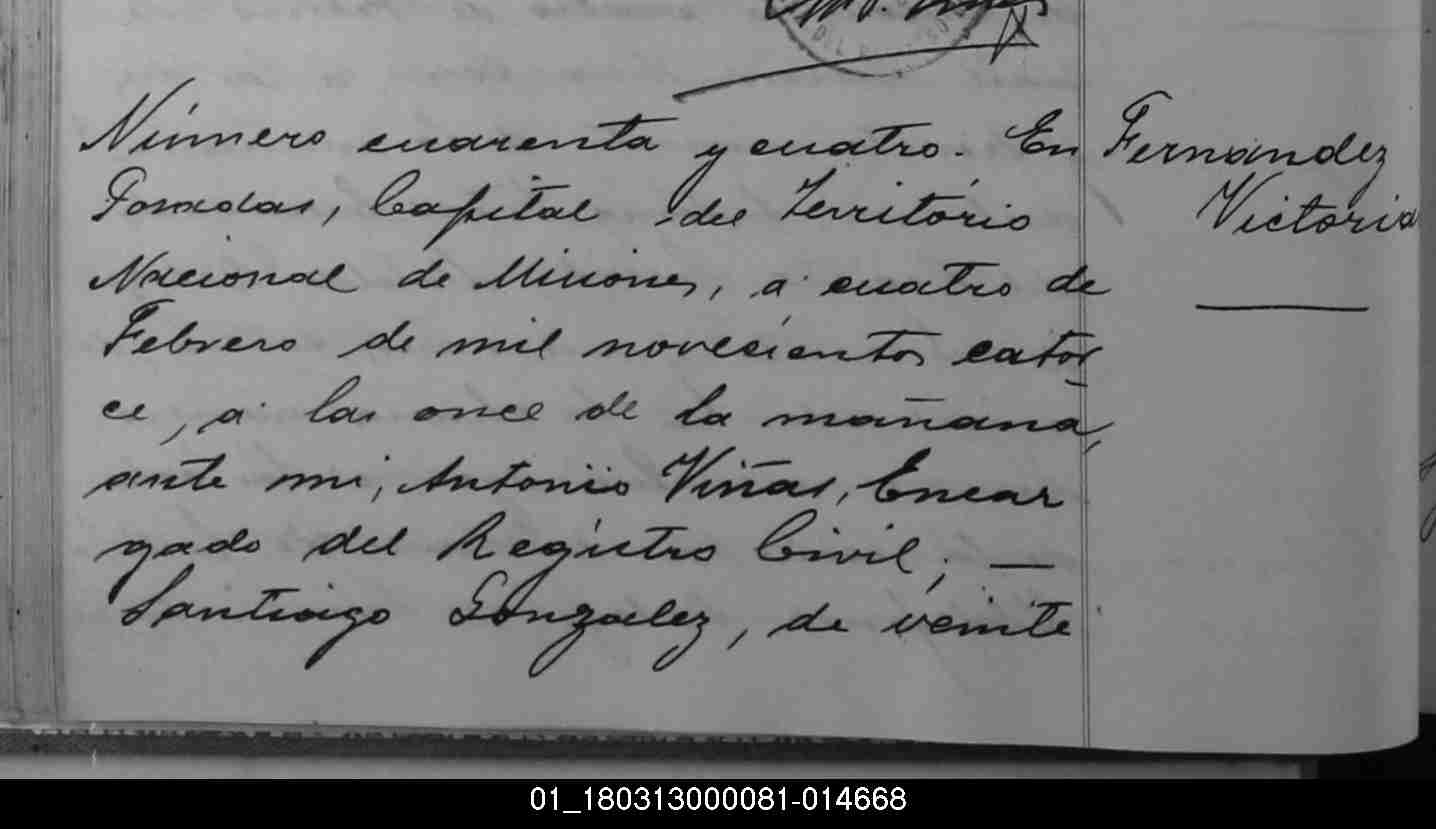 Número cuarenta y cuatro. En
Posadas, Capital del Território
Nacional de Misiones, á cuatro de
Febrero de mil novecientos cator
ce, á las once de la mañana,
ante mi, Antonio Viñas, Encar
gado del Registro Civil; —
Santiago Gonzalez, de veinte
Fernandez
Victoria
01_180313000081-014668